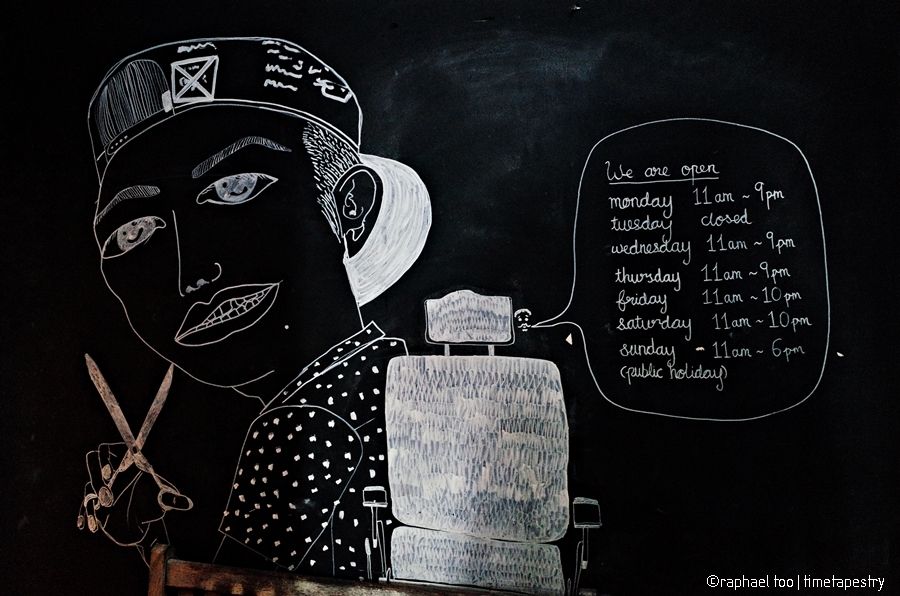 We are open
monday 11am ~ 9pm
tuesday closed
wednesday 11am ~ 9pm
thursday 11am ~ 9pm
friday 11am ~ 10pm
saturday 11am ~ 10pm
sunday - 11am ~ 6pm
(public holiday)
©raphael too | timetapestry